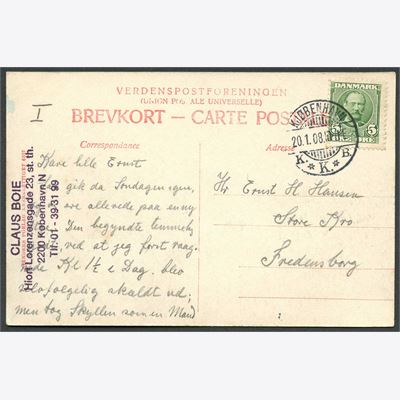 VERDENSPOSTFORENINGEN
(UNION POSTALE UNIVERSELLE)
BREVKORT – CARTE POS
Correspondance
Adresse
DANMARK
5
KJØBENHAVN
20.1.08.
K. * K. * B.
I
CLAUS BOIE
Hiort Lorenzensgade 23, st. th.
2200 København N
Tlf. 01 - 39 31 99
Kære lille Ernst
gik da Søndagen igen,
ere allevede paa enny
Den begyndte temmelig
ved at jeg først vaag
Kl 1½ e Dag, blev
skældt ud;
men tog Skyllen som en Mand
Hr Ernst H Hansen
Store Kro
Fredensborg